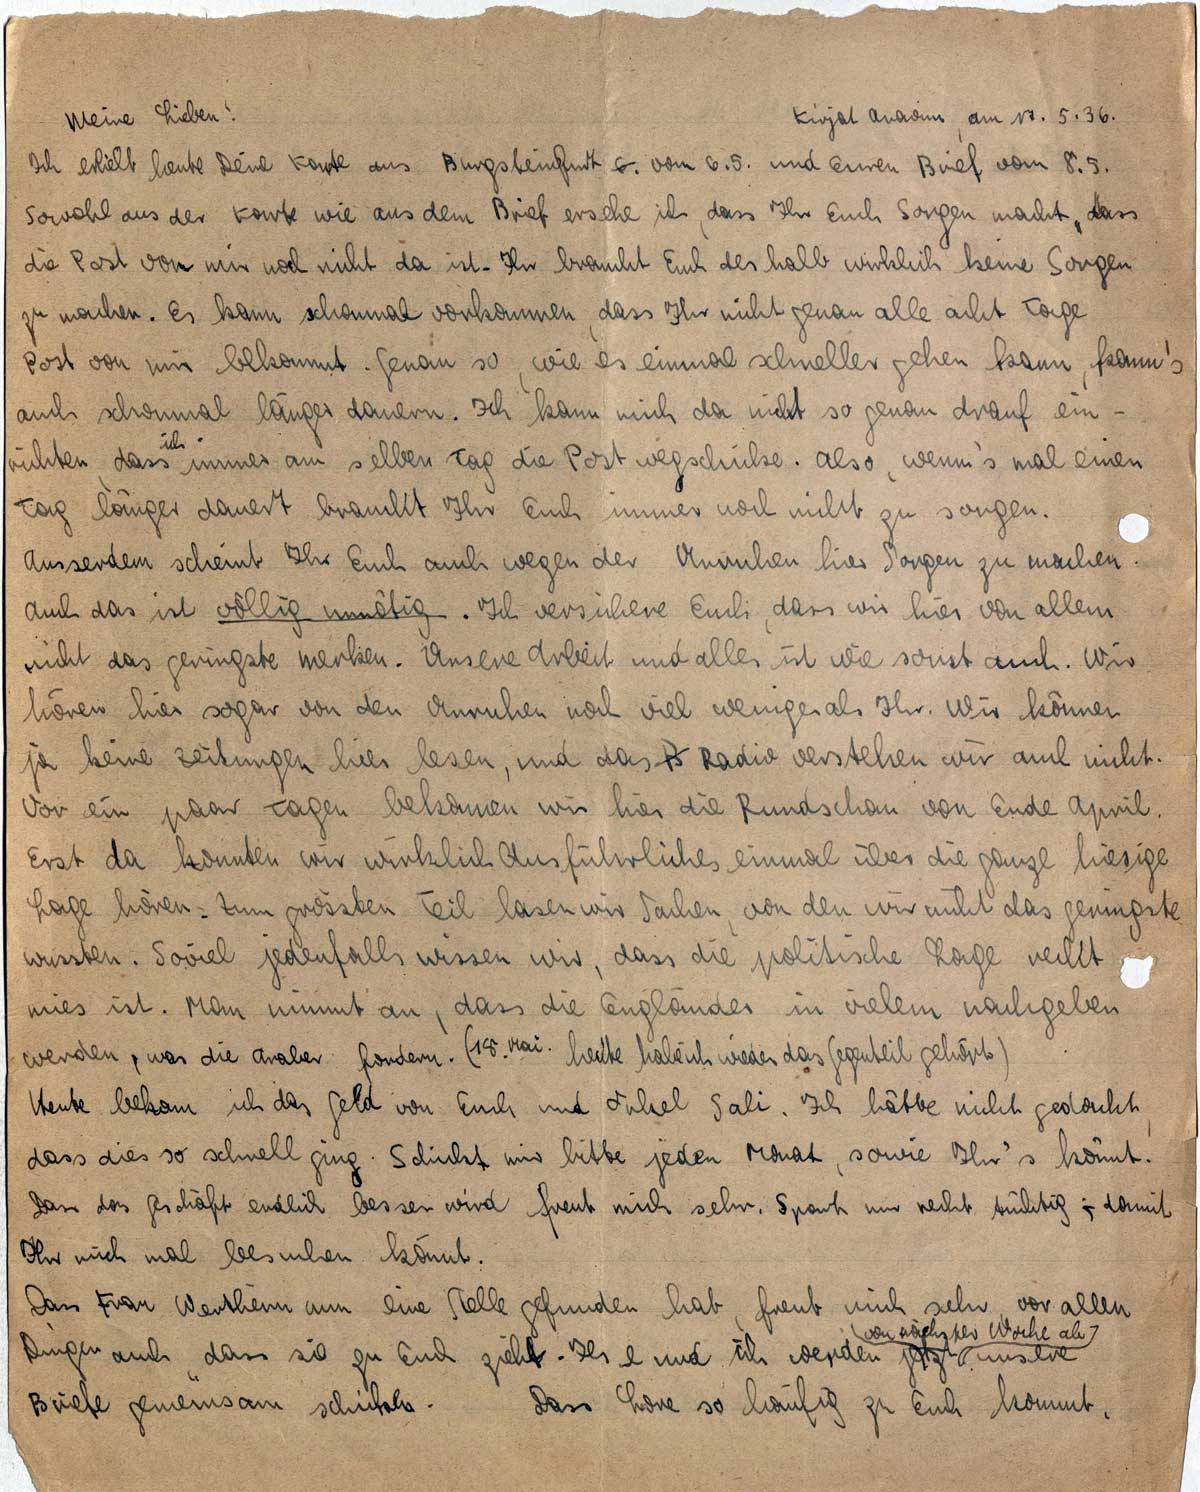 Meine Lieben!
Kirjat Anavim, am 17. 5. 36.
Ich erhielt heute Deine Karte aus Burgsteinfurt vom 6.5. und Euren Brief vom 8.5.
Sowohl aus der Karte wie aus dem Brief ersehe ich, dass Ihr Euch Sorgen macht, dass
die Post von mir noch nicht da ist. Ihr braucht Euch deshalb wirklich keine Sorgen
zu machen. Es kann schonmal vorkommen, dass Ihr nicht genau alle acht Tage
Post von mir bekommt. Genau so, wie es einmal schneller gehen kann, kann's
auch schonmal länger dauern. Ich kann mich da nicht so genau drauf ein-
richten, dass ich immer am selben Tag die Post wegschicke. Also, wenn's mal einen
Tag länger dauert braucht Ihr Euch immer noch nicht zu sorgen.
Ausserdem scheint Ihr Euch auch wegen der Unruhen hier Sorgen zu machen.
Auch das ist völlig unnötig. Ich versichere Euch, dass wir hier von allem
nicht das geringste merken. Unsere Arbeit und alles ist wie sonst auch. Wir
hören hier sogar von den Unruhen noch viel weniger als Ihr. Wir können
ja keine Zeitungen hier lesen, und das Radio verstehen wir auch nicht.
Vor ein paar Tagen bekamen wir hier die Rundschau von Ende April.
Erst da konnten wir wirklich Ausführliches einmal über die ganze hiesige
Lage hören. Zum grössten Teil lasen wir Sachen, von den wir nicht das geringste
wussten. Soviel jedenfalls wissen wir, dass die politische Lage recht
mies ist. Man nimmt an, dass die Engländer in vielem nachgeben
werden, was die Araber fordern. (18. Mai. heute hab ich wieder das Gegenteil gehört)
Heute bekam ich das Geld von Euch und Onkel Sali. Ich hätte nicht gedacht,
dass dies so schnell ging. Schickt mir bitte jeden Monat, sowie Ihr's könnt.
Dass das Geschäft endlich besser wird freut mich sehr. Spart nur recht tüchtig, damit
Ihr mich mal besuchen könnt.
Dass Frau Wertheim nun eine Stelle gefunden hat, freut mich sehr, vor allen
(von nächster Woche ab)
Dingen auch, dass sie zu Euch zieht. und ich werden jetzt unsere
Briefe gemeinsam schicken. Dass Lore so häufig zu Euch kommt,